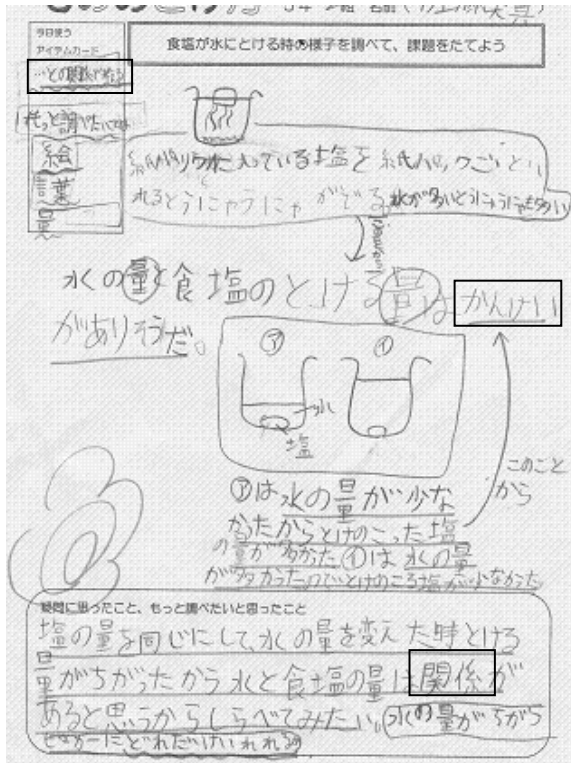 今日使う
アイテムカード
…との関係で考える
もっと調べたいことは
絵
言葉
量
食塩が水にとける時の様子を調べて、課題をたてよう
入っている塩を紙パックごとい
れるとうにゃうにゃがでる 水が多いとうにゃうにゃも多い
水の量と食塩のとける量はかんけい
がありそうだ。
ア
イ
水
塩
このこと
から
アは水の量が少な
かったからとけのこった塩
の量が多かった イは水の量
が多かったのでとけのこる塩が少なかった
疑問に思ったこと、もっと調べたいと思ったこと
塩の量を同じにして、水の量を変えた時とける
量がちがったから水と食塩の量は関係が
あると思うからしらべてみたい。水の量がちがう
ビーカーにどれだけいれれる